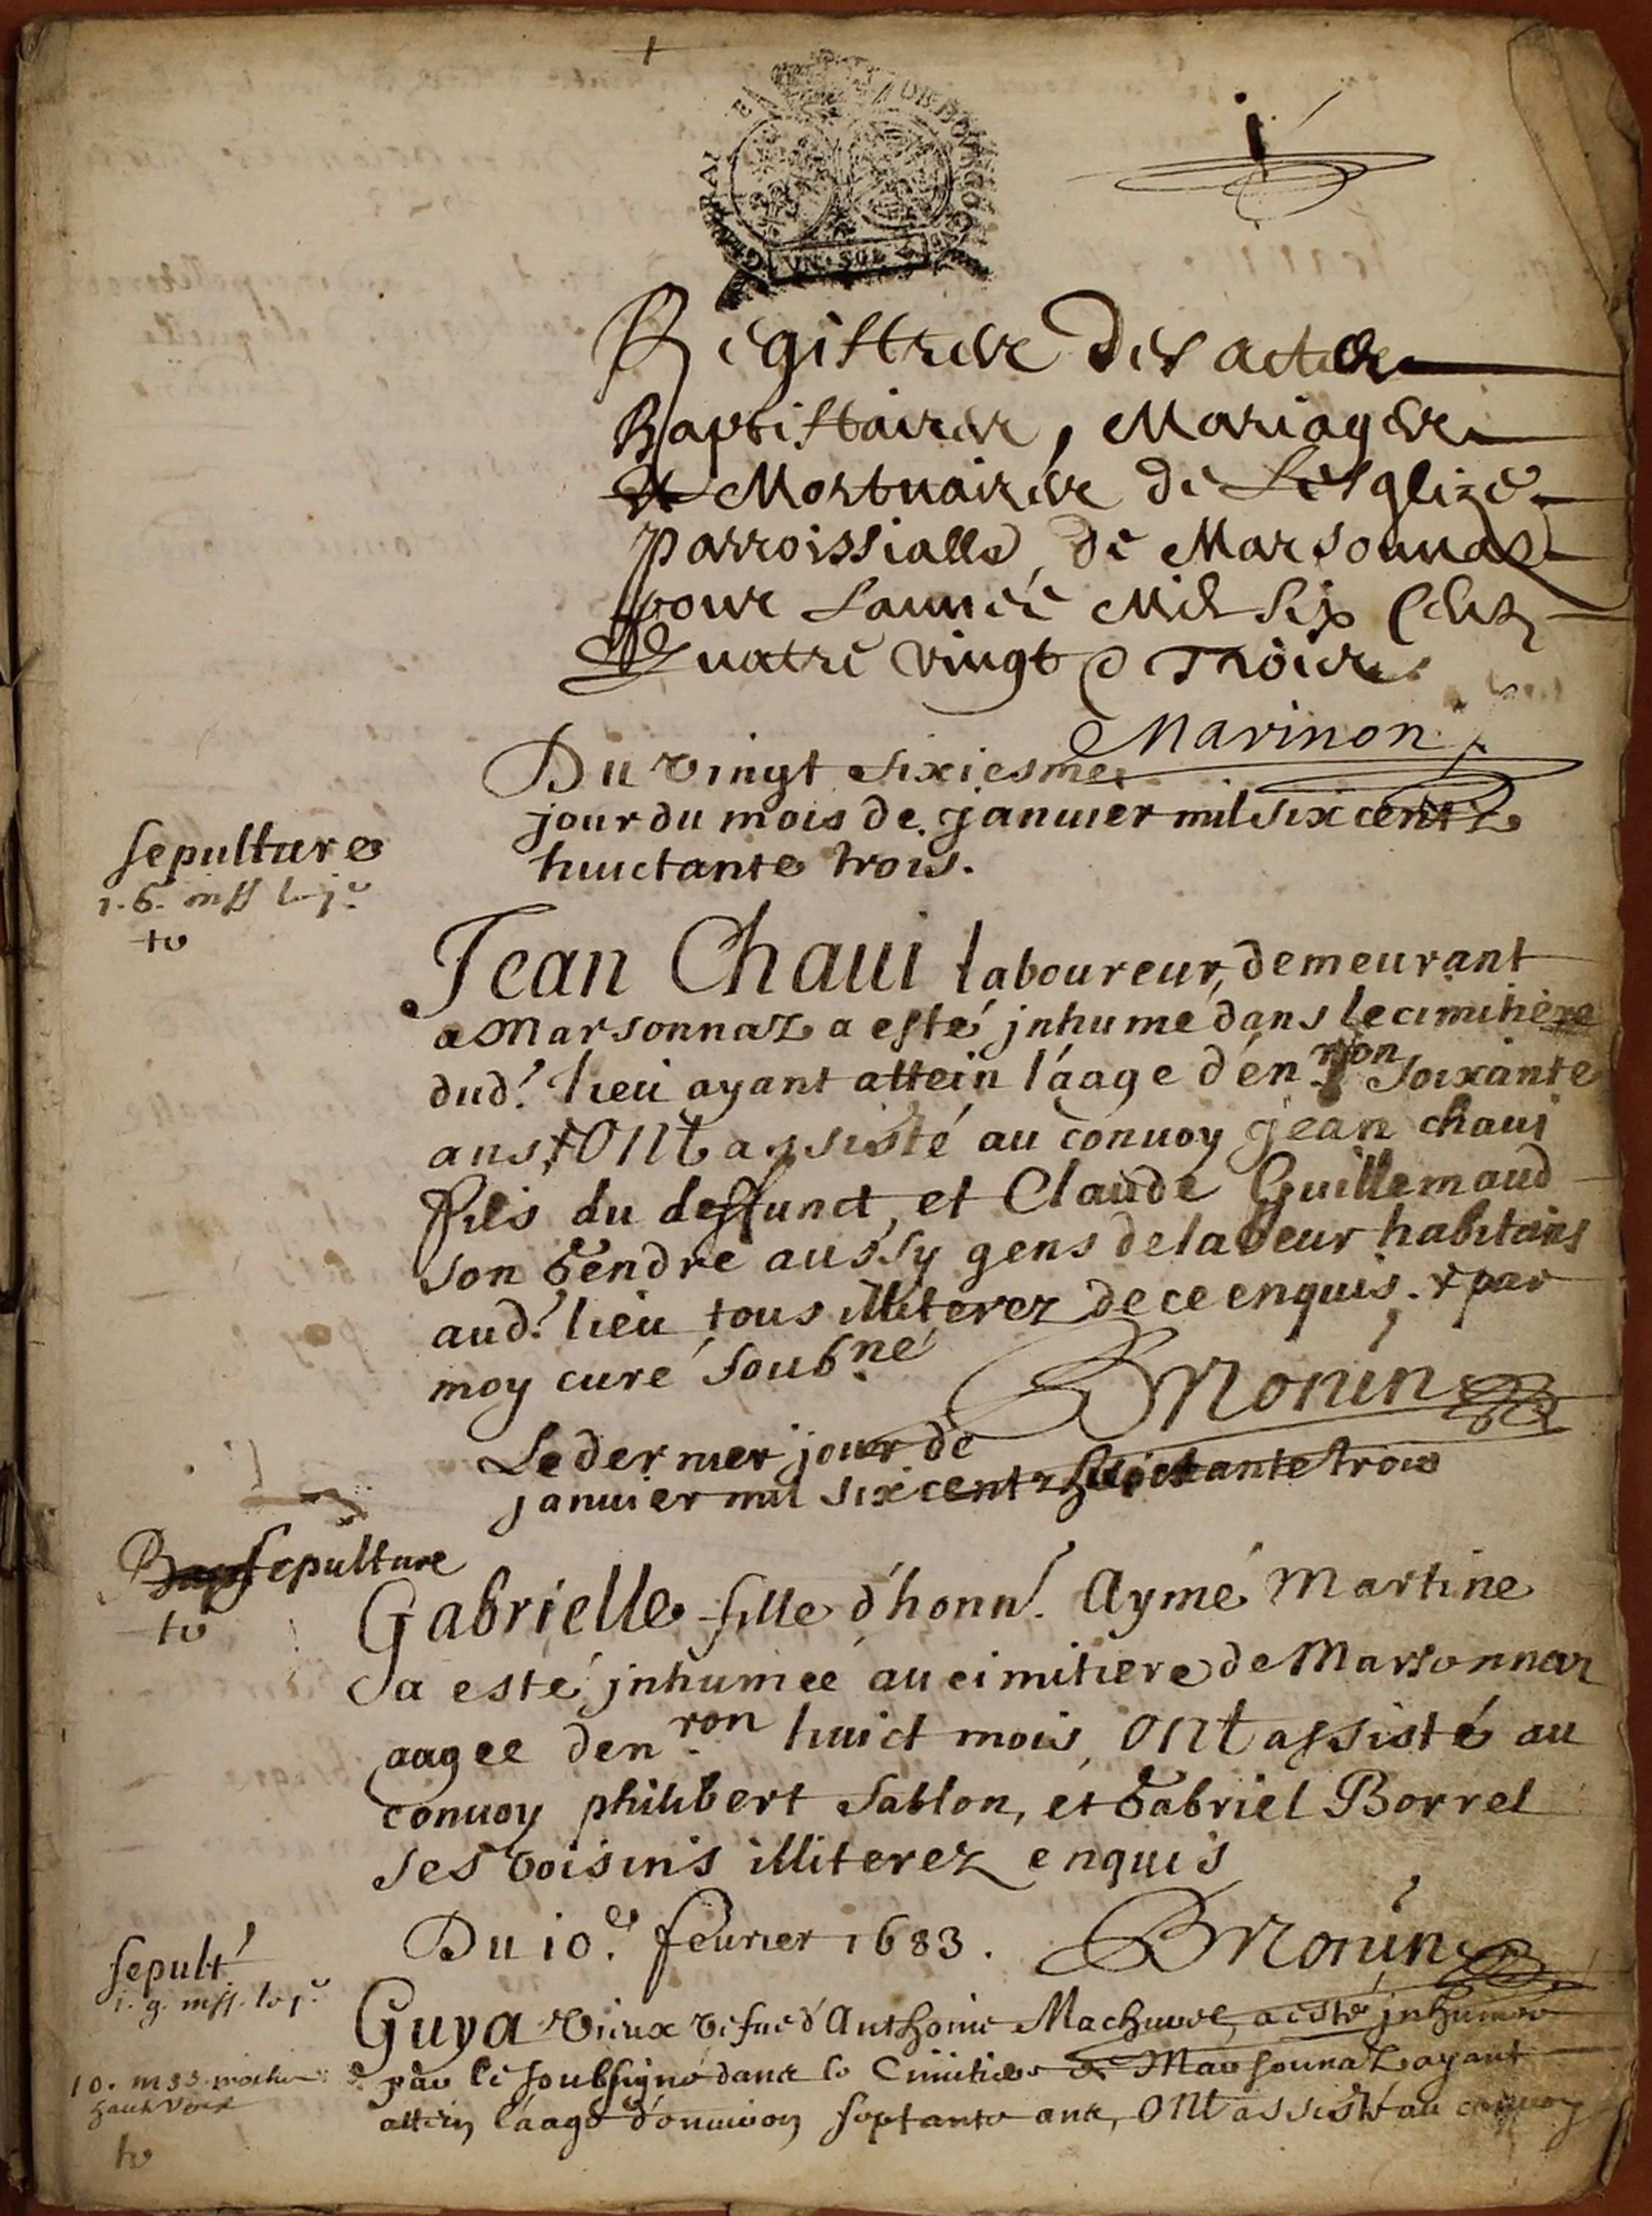 GENERAL DE BOURGOG
UN SOL
1
Registre des actes
Baptistaires, Mariages
et Mortuaires de Lesglize
parroissialle de Marsonnas
pour Lannée Mil Six Cents
Quatre vingt e Trois
Marinon
Du vingt sixiesme
jour du mois de januier mil six centz
huictante trois.
sepulture
Jean Chaui laboureur, demeurant
a Marsonnaz a esté jnhumé dans le cimitiere
dud.t lieu ayant attein l'áage d'énuiron soixante
ans, ONt assisté au conuoy jean chaui
fils du deffunct, et Claude Guillemaud
son Gendre aussy gens de labeur habitans
aud.t lieu tous illiterez de ce enquis. + par
moy curé soub.né
BMonin
Le dernier jour de
januier mil six centz huictante trois
Bap sepulture
Gabrielle fille d'honn.t Aymé Martine
a esté jnhumée au cimitiere de Marsonnaz
aagee denuiron huict mois, ONt assisté au
conuoy philibert Sablon, et Gabriel Borrel
ses voisins illiterez enquis
Du 10.e feurier 1683.
BMonin
sepult
Guya Vieux vefue d'Anthoine Machurel, a esté jnhumée
par le soubsigné dans le Cimitiere de Marsonnaz ayant
attein l'áage d'enuiron septante ans, ONt assisté au conuoy